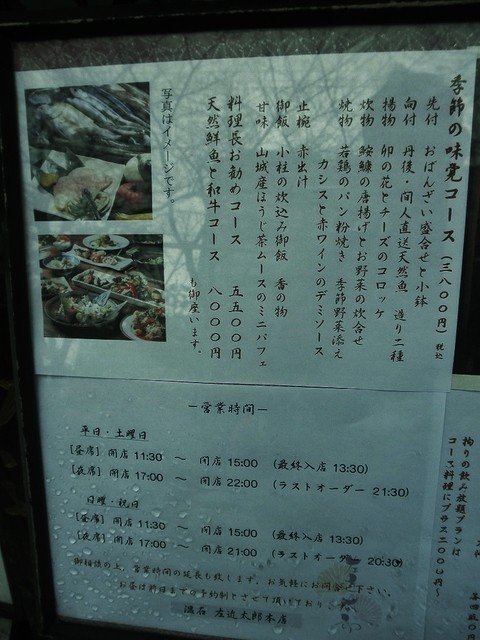 季節の味覚コース(三八〇〇円)税込
先付 おばんざい盛合せと小鉢
向付 丹後・間人直送天然魚 造り二種
揚物 卵の花とチーズのコロッケ
炊物 鮟鱇の唐揚げとお野菜の炊合せ
焼物 若鶏のパン粉焼き 季節野菜添え
カシスと赤ワインのデミソース
止椀 赤出汁
御飯 小柱の炊込み御飯 香の物
甘味 山城産ほうじ茶ムースのミニパフェ
料理長お勧めコース 五五〇〇円
天然鮮魚と和牛コース 八〇〇〇円
も御座います。
写真はイメージです。
ー営業時間ー
平日・土曜日
[昼席] 開店 11:30 ~ 閉店 15:00 (最終入店 13:30)
[夜席] 開店 17:00 ~ 閉店 22:00 (ラストオーダー 21:30)
日曜・祝日
[昼席] 開店 11:30 ~ 閉店 15:00 (最終入店 13:30)
[夜席] 開店 17:00 ~ 閉店 21:00 (ラストオーダー 20:30)
御相談の上、営業時間の延長も致します。お気軽にお問合せ下さい。
お昼は前日までの予約制とさせて頂いており
左近太郎本店
拘りの飲み放題プランは
コース料理にプラス二〇〇〇円~